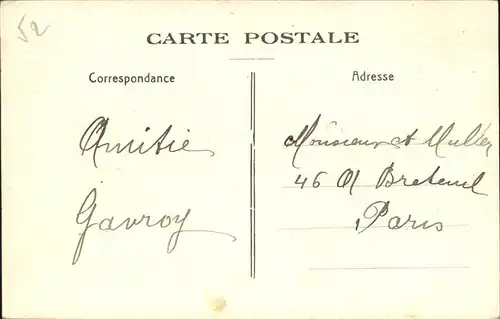 52
CARTE POSTALE
Correspondance
Adresse
Amitié
Gavroy
Monsieur et Muller
46 Breteuil
Paris